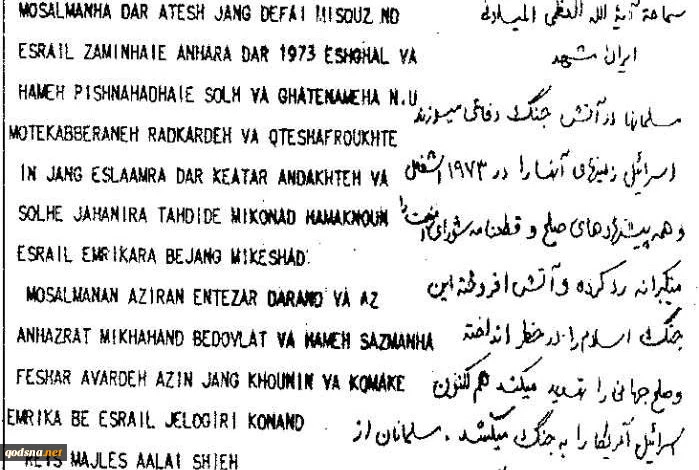 MOSALMANHA DAR ATESH JANG DEFAI MISOUZ ND
ESRAIL ZAMINHAIE ANHARA DAR 1973 ESHGHAL VA
HAMEH PISHNAHADHAIE SOLH VA GHATENAMEHA N.U
MOTEKABBERANEH RADKARDEH VA QTESHAFROUKHTE
IN JANG ESLAAMRA DAR KEATAR ANDAKHTEH VA
SOLHE JAHANIRA TAHDIDE MIKONAD HAMAKNOUN
ESRAIL EMRIKARA BEJANG MIKESHAD.
MOSALMANAN AZIRAN ENTEZAR DARAND VA AZ
ANHAZRAT MIKHAHAND BEDOVLAT VA HAMEH SAZMANHA
FESHAR AVARDEH AZIN JANG KHOUNIN VA KOMAKE
EMRIKA BE ESRAIL JELOGIRI KONAND
REIS MAJLES AALAI SHIEH
سماحة آية الله العظمى الميلادی
ايران مشهد
مسلمانها در آتش جنگ دفاعی میسوزند
اسرائیل زمینهای آنها را در ۱۹۷۳ اشغال
و همه پیشنهادهای صلح و قطعنامه شورای امنیت را
متکبرانه رد کرده و آتش افروخته این
جنگ اسلام را در خطر انداخته
و صلح جهانی را تهدید میکند هم اکنون
اسرائیل آمریکا را به جنگ میکشد . مسلمانان از
qodsna.net